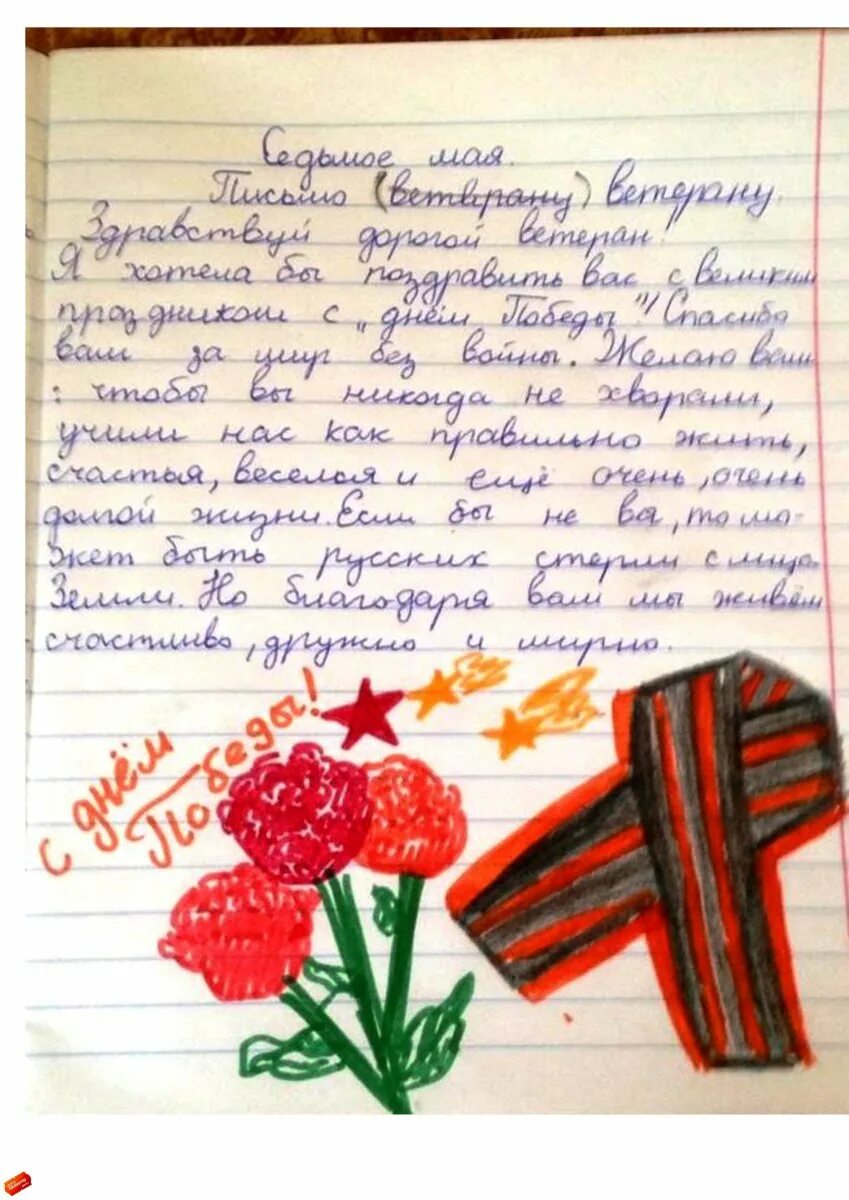 Седьмое мая.
Письмо (ветврану) ветерану.
Здравствуй дорогой ветеран!
Я хотела бы поздравить вас с великим
праздником с "днём Победы"! Спасибо
вам за мир без войны. Желаю вам
: чтобы вы никогда не хворали,
учили нас как правильно жить,
счастья, веселья и ещё очень, очень
долгой жизни. Если бы не вы, то мо-
жет быть русских стёрли с лица
Земли. Но благодаря вам мы живём
счастливо, дружно и мирно.
С днём
Победы!